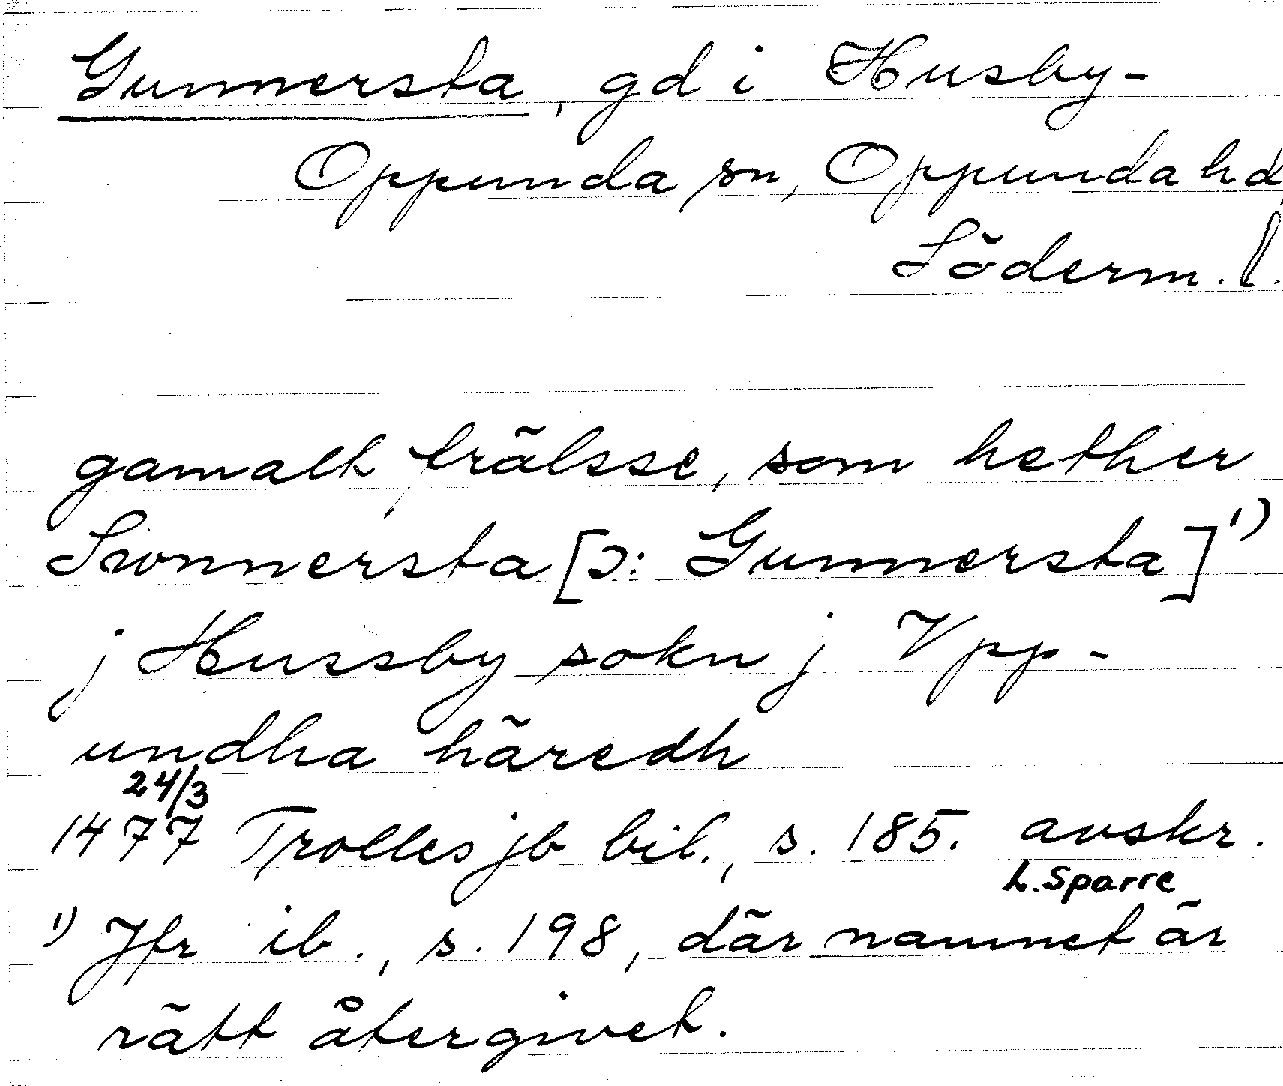 Gunnersta, gd i Husby-
Oppunda sn, Oppunda hd,
Söderm. l.
gamalt frälsse, som hether
Swnnersta [ɔ: Gunnersta]¹)
j Hussby sokn j Vpp-
undha häredh
24/3
1477 Trolles jb bil., s. 185. avskr.
L. Sparre
¹) Jfr ib., s. 198, där namnet är
rätt återgivet.